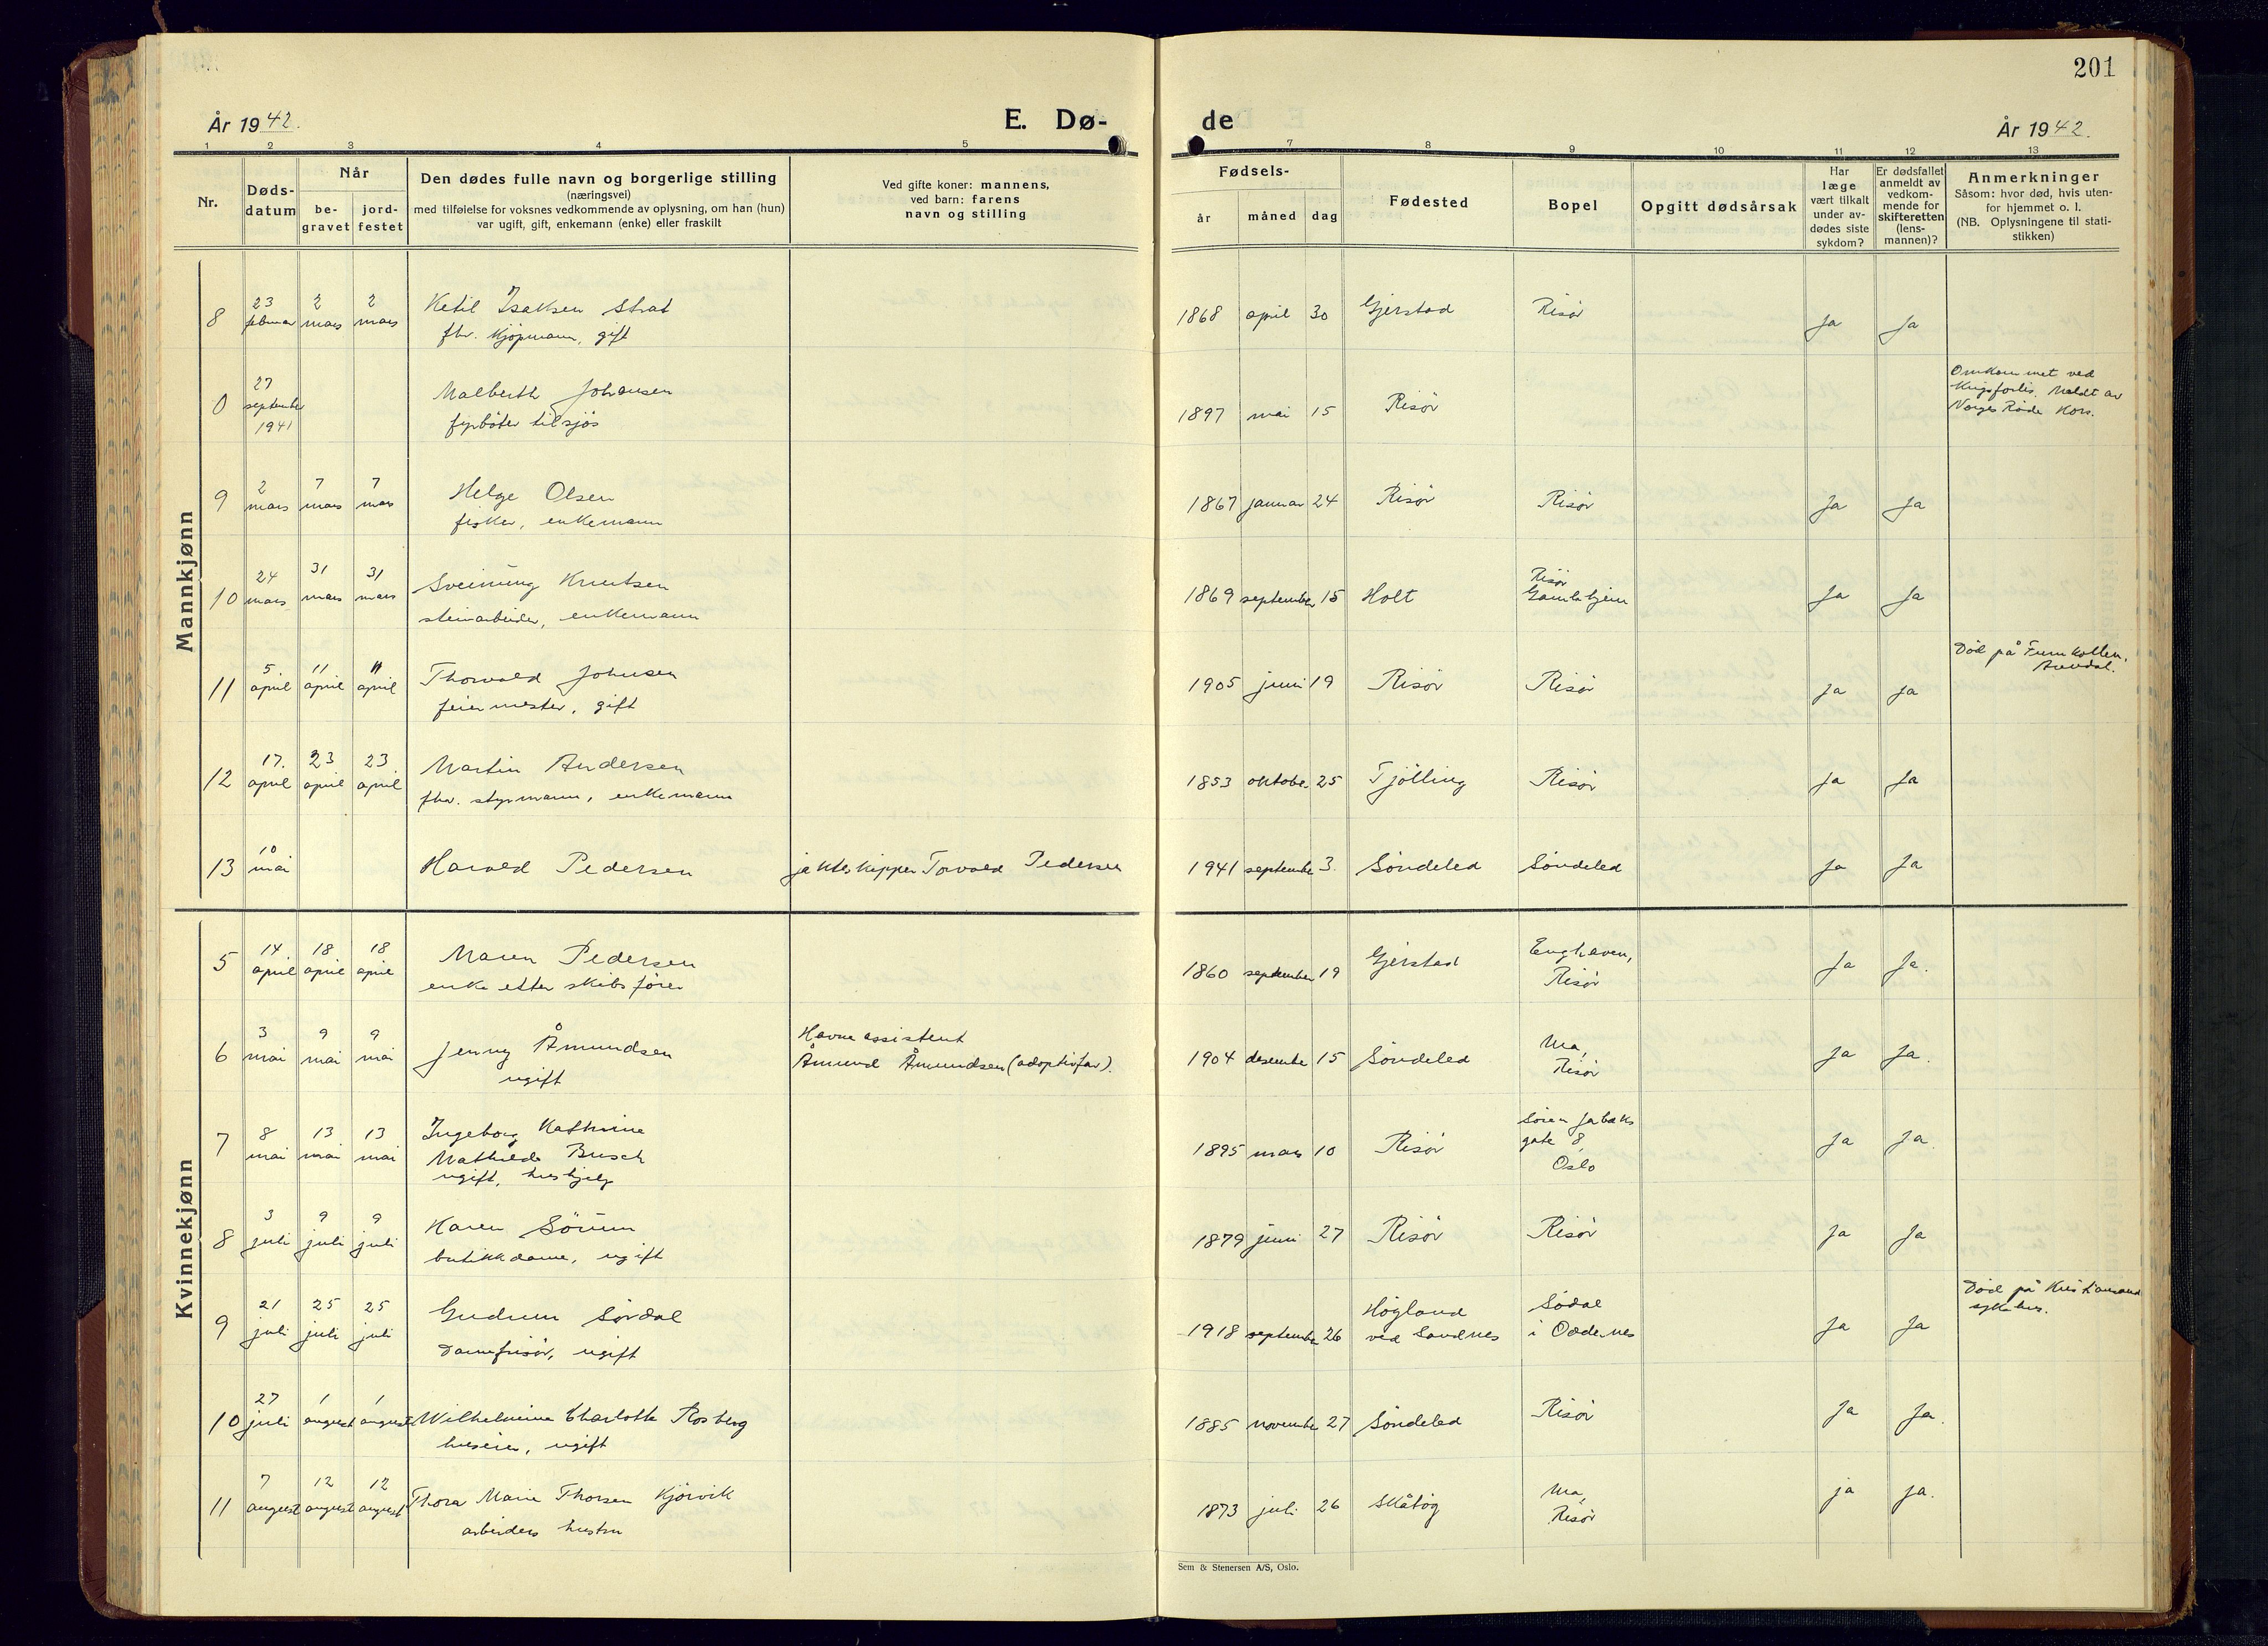 201
År 1942.
E. Dø-
de
År 1942.
1 2 3 4 5 7 8 9 10 11 12 13
Nr.
Døds-
datum
Når
be-
gravet
jord-
festet
Den dødes fulle navn og borgerlige stilling
(næringsvei)
med tilføielse for voksnes vedkommende av oplysning, om han (hun)
var ugift, gift, enkemann (enke) eller fraskilt
Ved gifte koner: mannens,
ved barn: farens
navn og stilling
Fødsels-
år måned dag
Fødested
Bopel
Opgitt dødsårsak
Har
læge
vært tilkalt
under av-
dødes siste
sykdom?
Er dødsfallet
anmeldt av
vedkom-
mende for
skifteretten
(lens-
mannen)?
Anmerkninger
Såsom: hvor død, hvis uten-
for hjemmet o. l.
(NB. Oplysningene til stati-
stikken)
Mannkjønn
8 23 februar 2 mars 2 mars Ketil Isaksen Strat
fhv. kjøpmann, gift
1868 april 30 Gjerstad Risör Ja Ja
0 27 september 1941 Malberth Johansen
fyrböter tilsjös
1897 mai 15 Risör
Omkommet ved
krigsforlis. Meldt av
Norges Röde Kors.
9 2 mars 7 mars 7 mars Helge Olsen
fisker, enkemann
1867 januar 24 Risör Risör Ja Ja
10 24 mars 31 mars 31 mars Sveinung Knutsen
steinarbeider, enkemann
1869 september 15 Holt Risör
Gamlehjem Ja Ja
11 5. april 11 april 11 april Thorvald Johnsen
feiermester, gift
1905 juni 19 Risör Risör Ja Ja
Död på Furukollen,
Arendal.
12 17. april 23 april 23 april Martin Andersen
fhv. styrmann, enkemann
1853 oktober 25 Tjölling Risör Ja Ja
13 10 mai Harald Pedersen jakteskipper Torvald Pedersen
1941 september 3. Söndeled Söndeled Ja Ja
Kvinnekjønn
5 14 april 18 april 18 april Maren Pedersen
enke etter skibsförer
1860 september 19 Gjerstad Enghaven,
Risör Ja Ja.
6 3 mai 9 mai 9 mai Jenny Åmundsen
ugift
Havneassistent
Åmund Åmundsen (adoptivfar).
1904 desember 15 Söndeled
Risör Ja Ja.
7 8 mai 13 mai 13 mai Ingeborg Kathrine
Mathilde Busch
ugift, hushjelp
1895 mars 10 Risör Sören Jabæks
gate 8,
Oslo Ja Ja.
8 3 juli 9 juli 9 juli Karen Sörum
butikkdame, ugift
1879 juni 27 Risör Risör Ja Ja
9 21 juli 25 juli 25 juli Gudrun Sördal
Damefrisör, ugift
1918 september 26 Högland
ved Sandnes
Södal
i Oddernes Ja Ja
Död på Kristiansand
sykehus.
10 27 juli 1 august 1 august Wilhelmine Charlotte Rosberg
huseier, ugift
1885 november 27 Söndeled Risör Ja Ja.
11 7 august 12 august 12 august Thora Marie Thorsen Kjörvik
arbeiders hustru
1873 juli 26 Skåtöy
Risör ja Ja.
Sem & Stenersen A/S, Oslo.